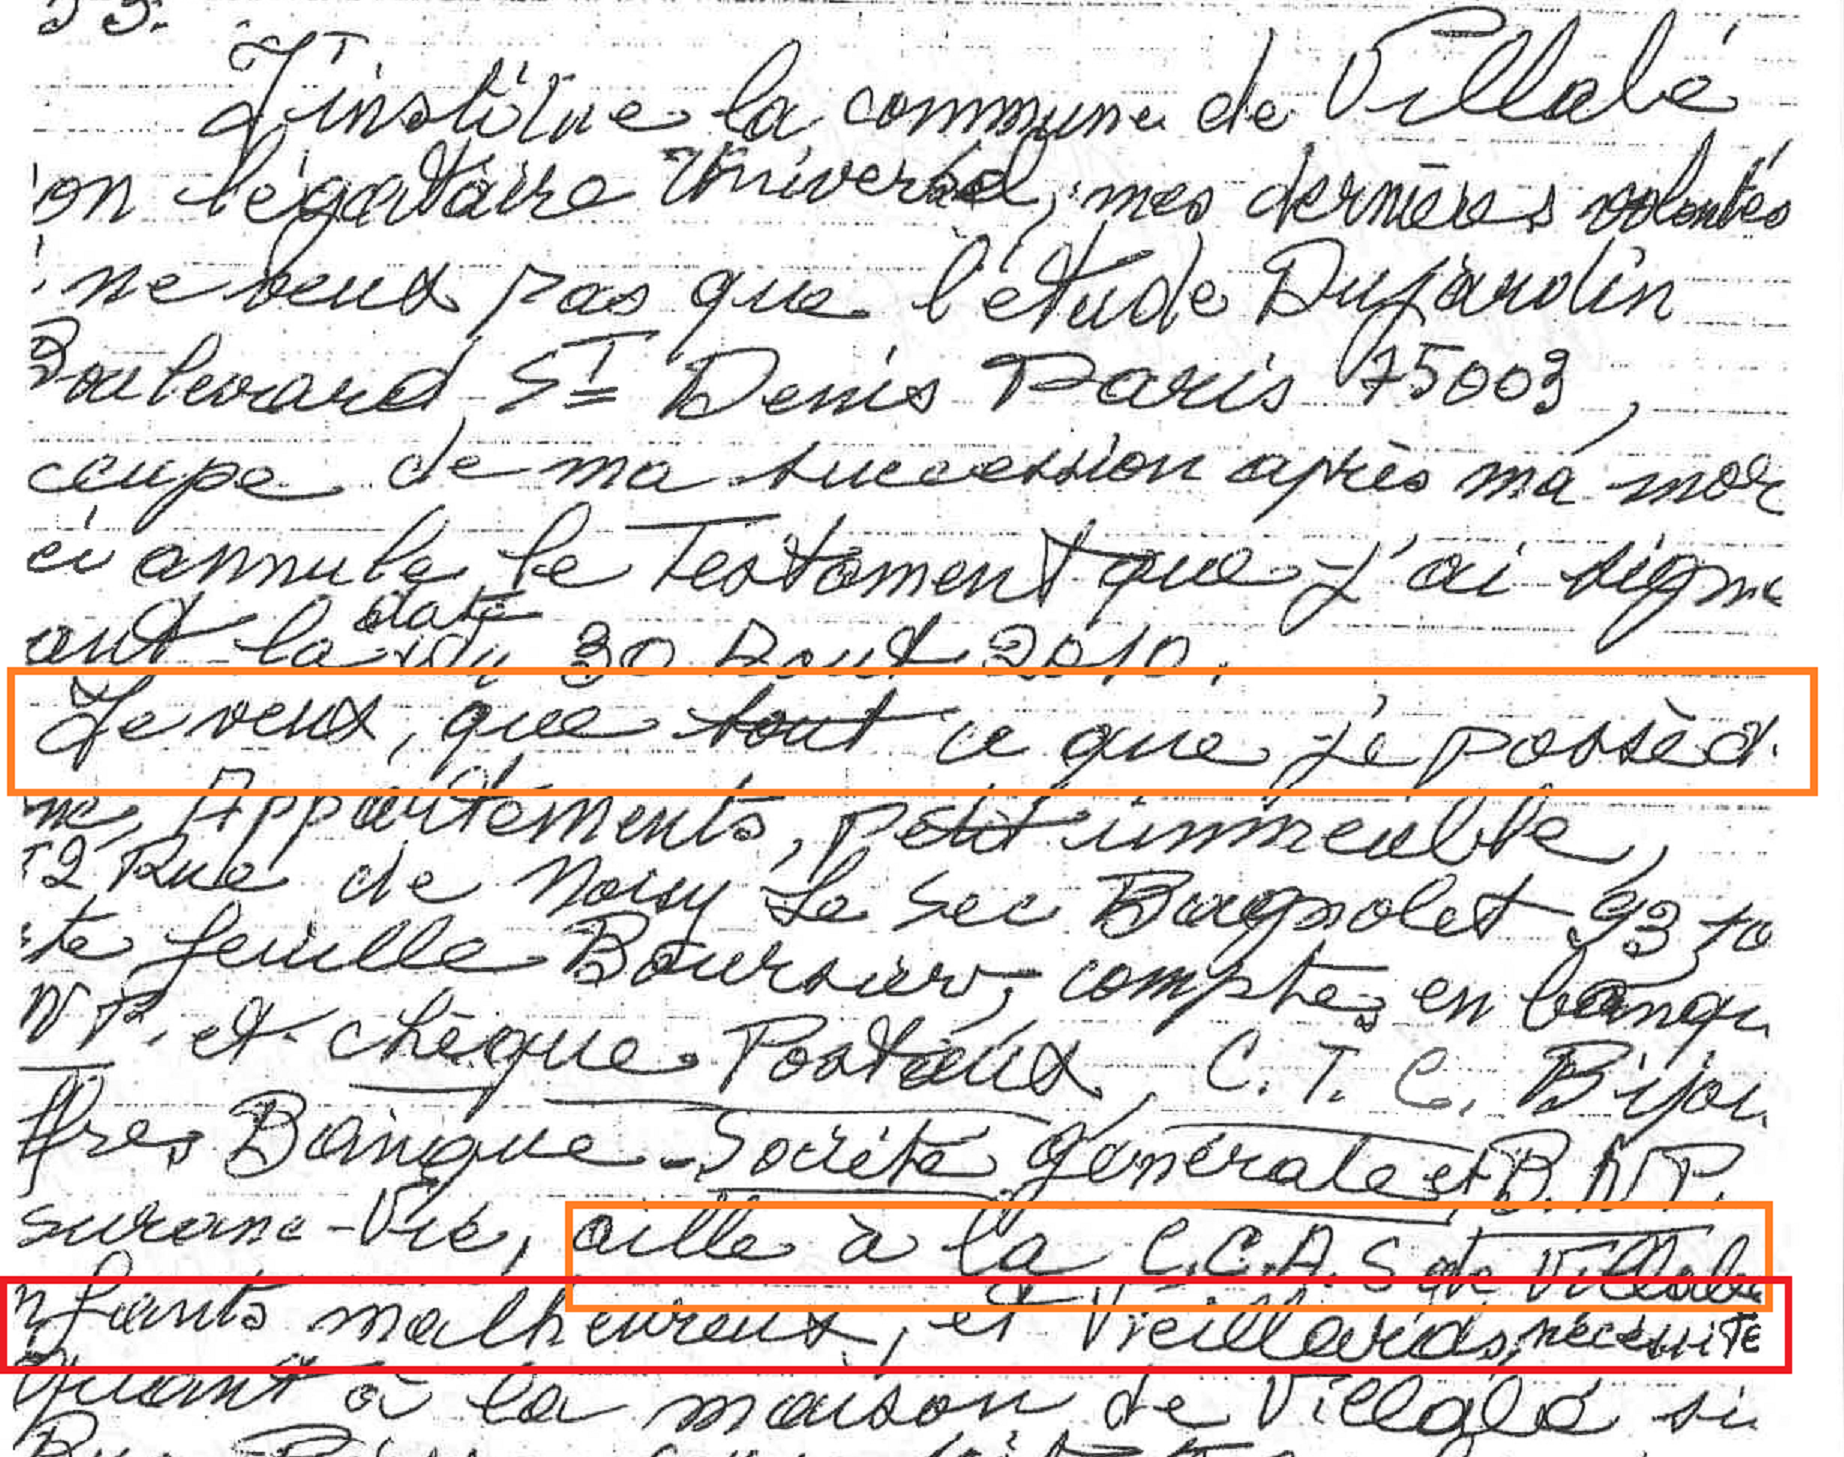 53.
J'institue la commune de Villabé
on légataire Universel, mes dernières volontés
ne veux pas que l'étude Dujardin
Boulevard St Denis Paris 75003,
ccupe de ma succession après ma mor
ci annule le Testament que j'ai signé
ant la date du 30 Aout 2010.
Je veux, que tout ce que je possèd
Appartements, petit immeuble,
12 Rue de Noisy Le Sec Bagnolet 93
te feuille Boursier, comptes en banqu
N P. et chèque Postaux, C.T.C. Bijou
ffres Banque Société générale et B.N.P.
surance-Vie, aille à la C.C.A.S de Villabé
nfants malheureux, et Vieillards, nécessité
Quant à la maison de Villabé si